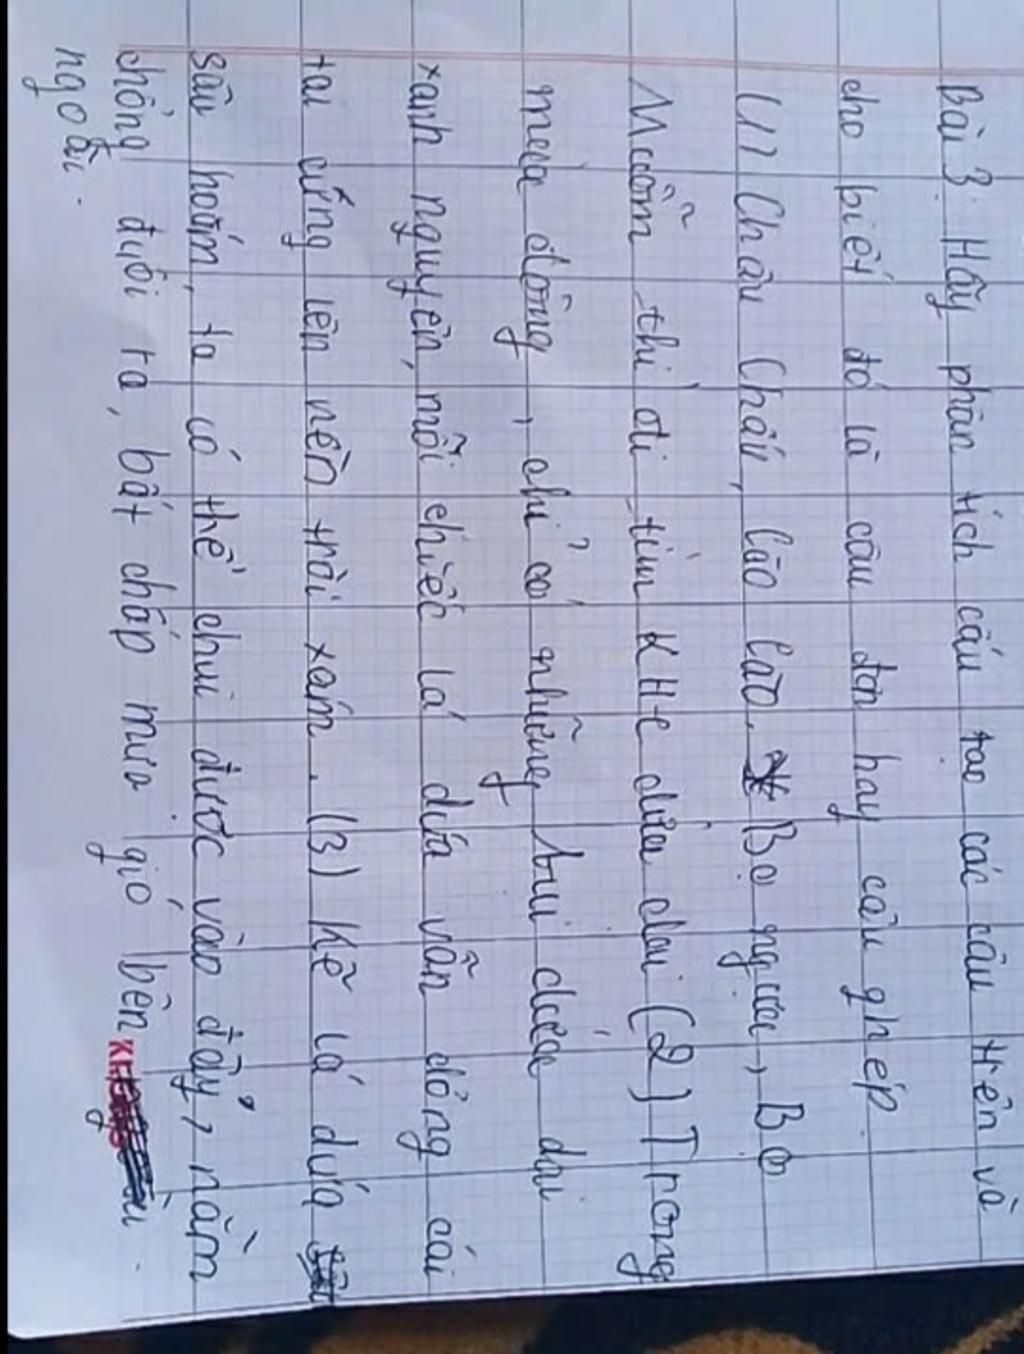 Bài 3: Hãy phân tích cấu tạo các câu trên và
cho biết đó là câu đơn hay câu ghép
(1) Châu Chấu, Cào Cào, Bọ ngựa, Bọ
Muỗm thì đi tìm KHe dứa dại (2) Trong
mùa đông, chỉ có những bụi dứa dại
xanh nguyên, mỗi chiếc lá dứa vẫn dỏng cái
tai cứng lên nền trời xám. (3) Kẽ lá dứa
sâu hoắm, ta có thể chui được vào đấy, nằm
chổng đuôi ra, bất chấp mưa gió bên
ngoài.